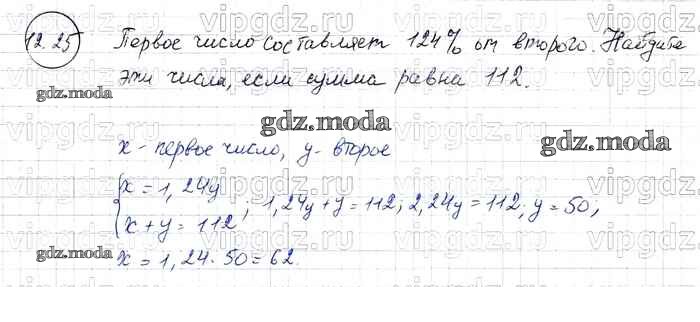 12.25 Первое число составляет 124% от второго. Найдите
эти числа, если сумма равна 112.
gdz.moda
gdz.moda
gdz.moda
x - первое число, y - второе
{x = 1,24y
x + y = 112; 1,24y + y = 112; 2,24y = 112; y = 50;
gdz.moda
x = 1,24 · 50 = 62.
vipgdz.z